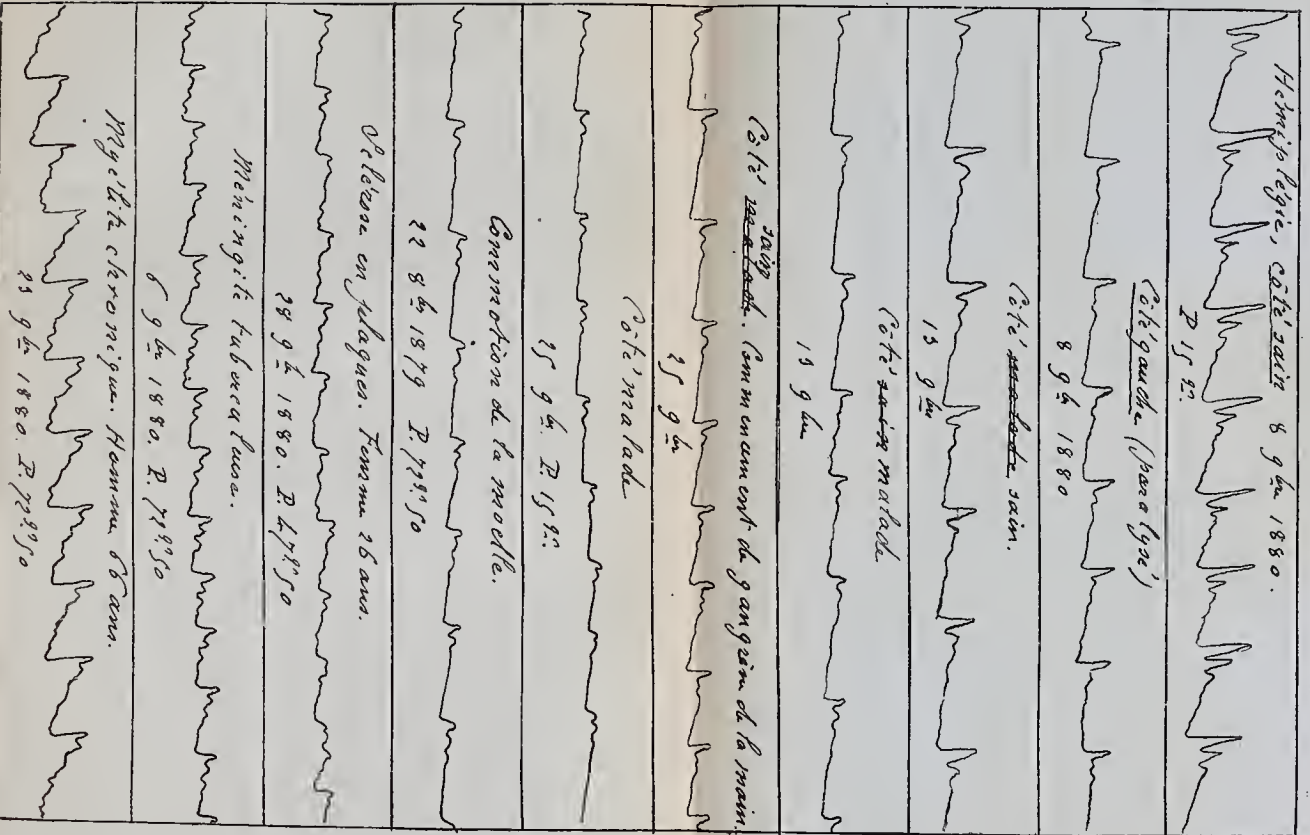 Hémiplégie, côté sain 8 9bre 1880.
P. 15 gr.
Côté gauche (paralysé)
8 9bre 1880
Côté malade sain.
13 9bre
Côté sain malade
13 9bre
sain
Côté malade. Commencement de gangrène de la main.
25 9bre
Côté malade
25 9bre P. 15 gr.
Commotion de la moelle.
22 8bre 1879 P. 77gr50
Sclérose en plaques. Femme 26 ans.
28 9bre 1880. P.
Méningite tuberculeuse.
6 9bre 1880. P. 72gr50
Myélite chronique. Homme 66 ans.
23 9bre 1880. P. 72gr50